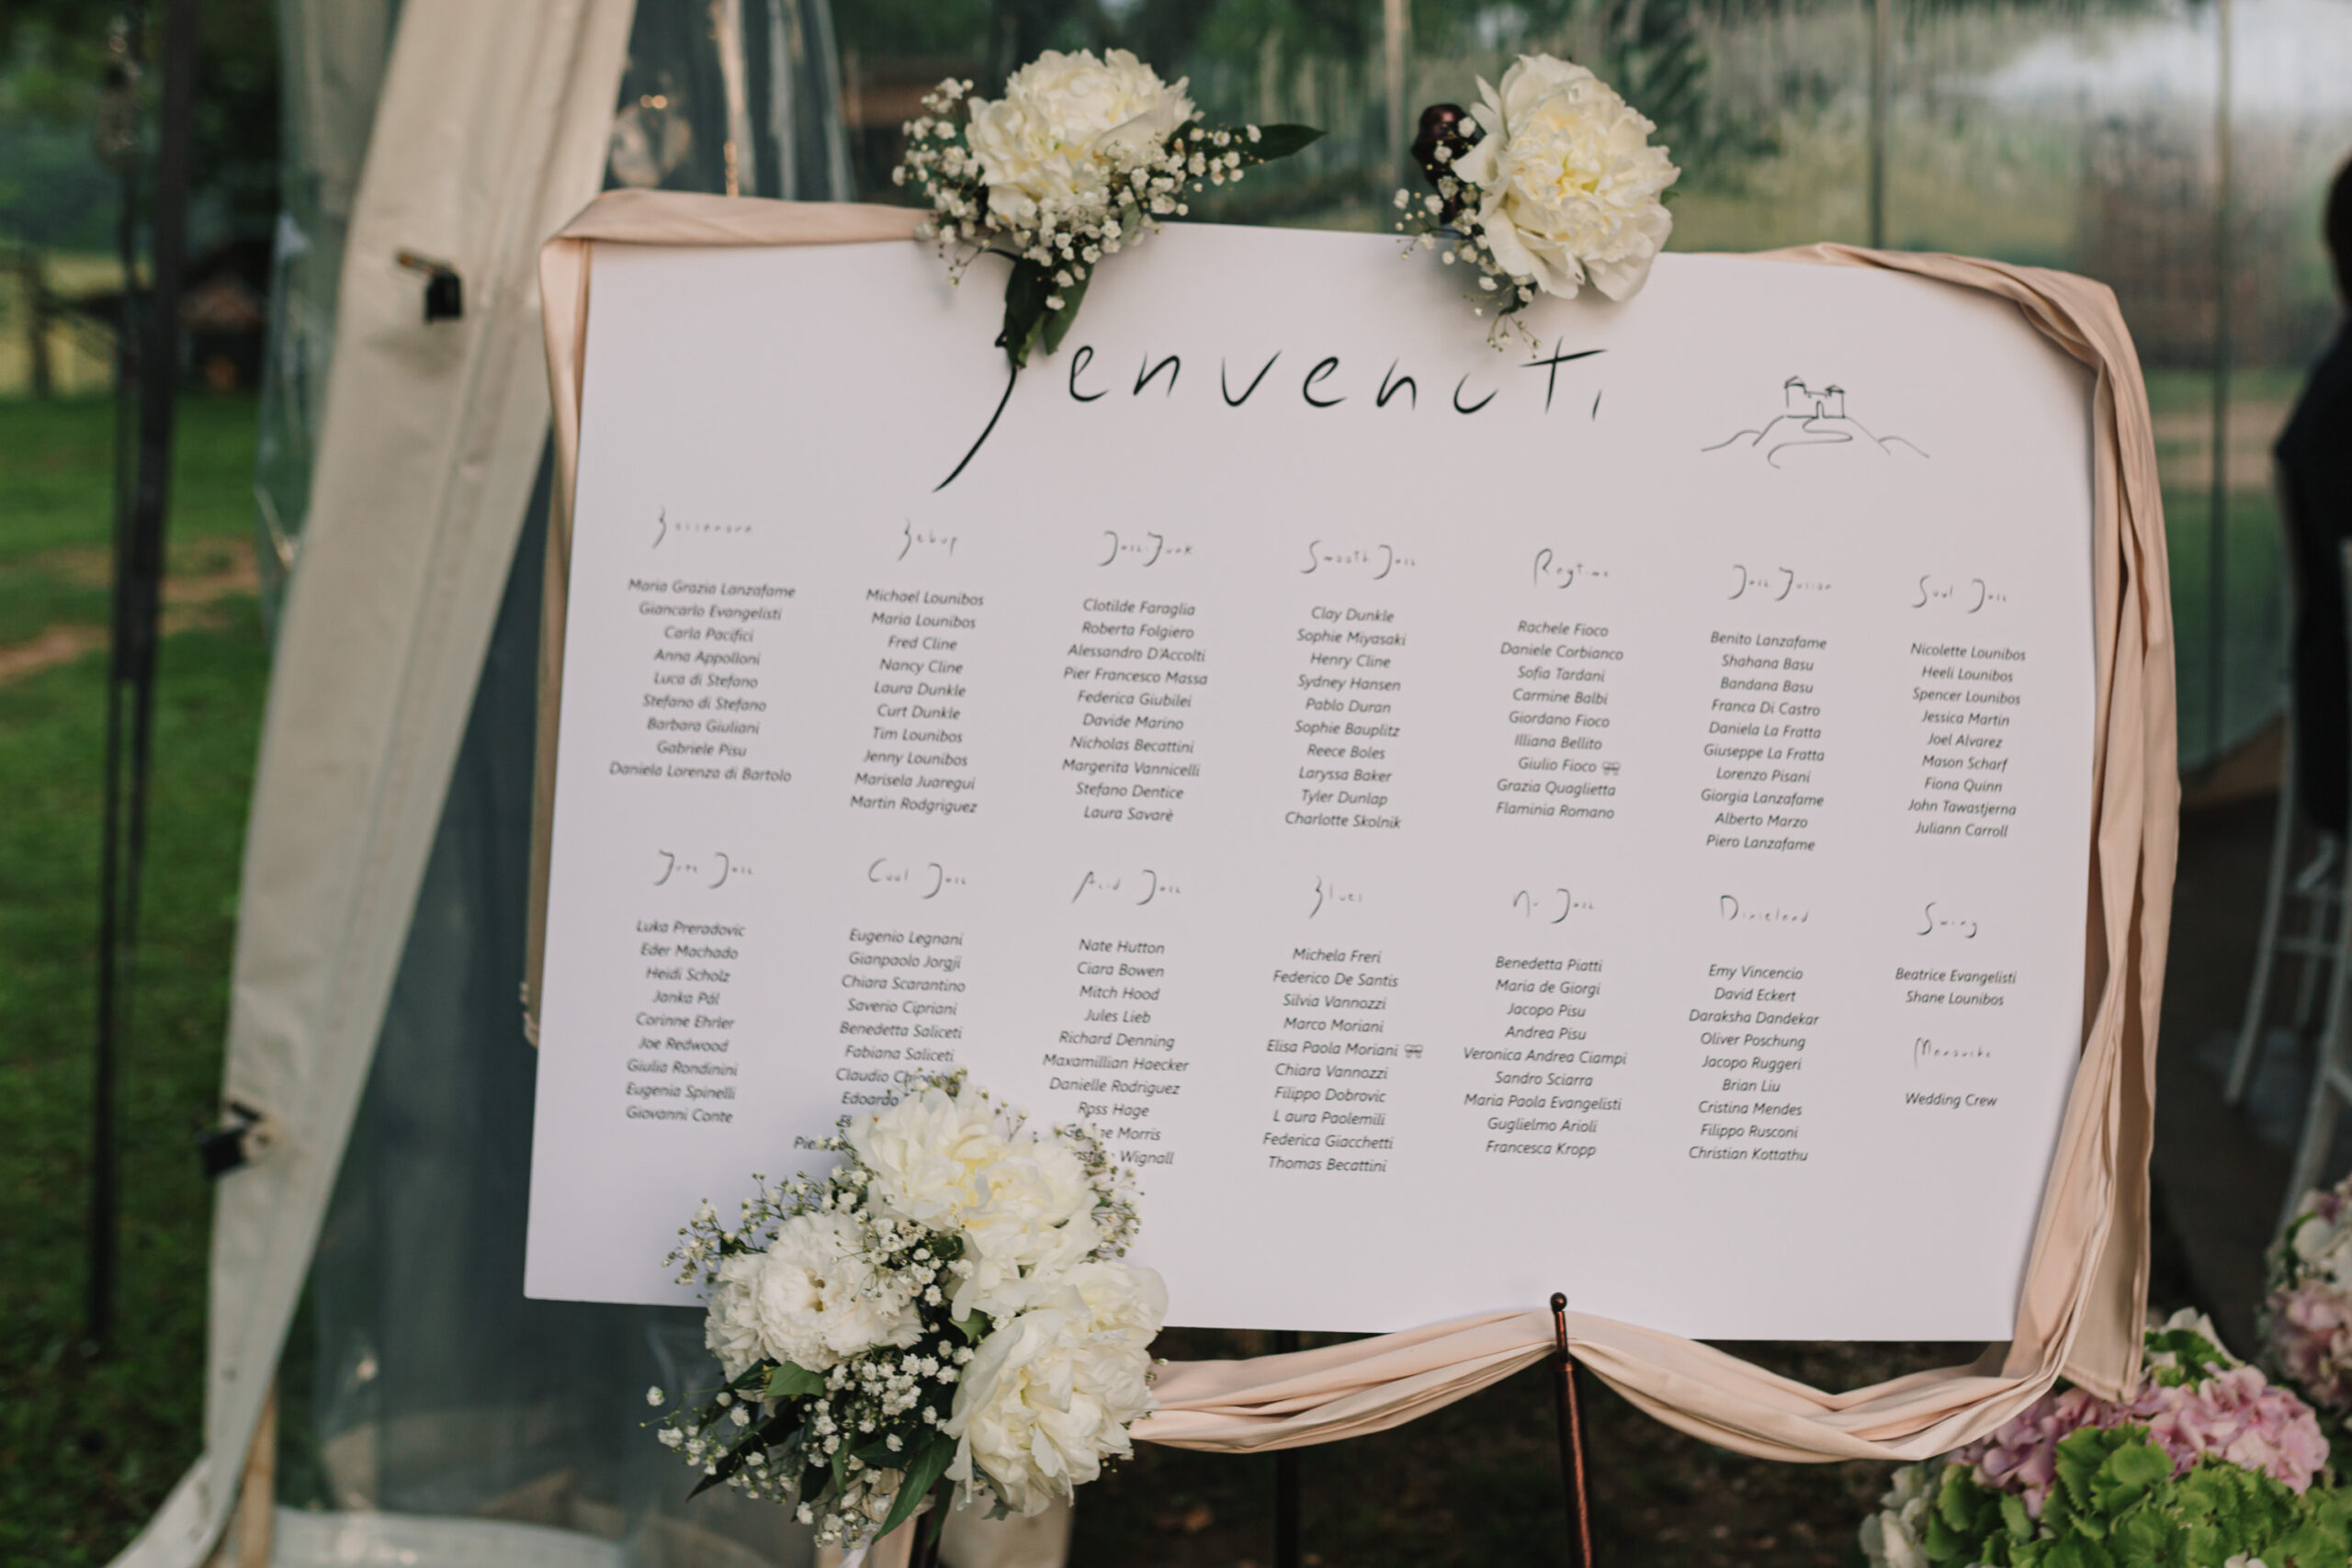 Benvenuti
Bossanova
Maria Grazia Lanzafame
Giancarlo Evangelisti
Carla Pacifici
Anna Appolloni
Luca di Stefano
Stefano di Stefano
Barbara Giuliani
Gabriele Pisu
Daniela Lorenza di Bartolo
Bebop
Michael Lounibos
Maria Lounibos
Fred Cline
Nancy Cline
Laura Dunkle
Curt Dunkle
Tim Lounibos
Jenny Lounibos
Marisela Juaregui
Martin Rodgriguez
Jazz-Funk
Clotilde Faraglia
Roberta Folgiero
Alessandro D'Accolti
Pier Francesco Massa
Federica Giubilei
Davide Marino
Nicholas Becattini
Margerita Vannicelli
Stefano Dentice
Laura Savarè
Smooth Jazz
Clay Dunkle
Sophie Miyasaki
Henry Cline
Sydney Hansen
Pablo Duran
Sophie Bauplitz
Reece Boles
Laryssa Baker
Tyler Dunlap
Charlotte Skolnik
Ragtime
Rachele Fioco
Daniele Corbianco
Sofia Tardani
Carmine Balbi
Giordano Fioco
Illiana Bellito
Giulio Fioco
Grazia Quaglietta
Flaminia Romano
Jazz Fusion
Benito Lanzafame
Shahana Basu
Bandana Basu
Franca Di Castro
Daniela La Fratta
Giuseppe La Fratta
Lorenzo Pisani
Giorgia Lanzafame
Alberto Marzo
Piero Lanzafame
Soul Jazz
Nicolette Lounibos
Heeli Lounibos
Spencer Lounibos
Jessica Martin
Joel Alvarez
Mason Scharf
Fiona Quinn
John Tawastjerna
Juliann Carroll
Jazz
Luka Preradovic
Eder Machado
Heidi Scholz
Janka Pál
Corinne Ehrler
Joe Redwood
Giulia Rondinini
Eugenia Spinelli
Giovanni Conte
Cool Jazz
Eugenio Legnani
Gianpaolo Jorgji
Chiara Scarantino
Saverio Cipriani
Benedetta Saliceti
Fabiana Saliceti
Claudio
Edoardo
Acid Jazz
Nate Hutton
Ciara Bowen
Mitch Hood
Jules Lieb
Richard Denning
Maxamillian Haecker
Danielle Rodriguez
Rpss Hage
Morris
Wignall
Blues
Michela Freri
Federico De Santis
Silvia Vannozzi
Marco Moriani
Elisa Paola Moriani
Chiara Vannozzi
Filippo Dobrovic
L aura Paolemili
Federica Giacchetti
Thomas Becattini
Nu Jazz
Benedetta Piatti
Maria de Giorgi
Jacopo Pisu
Andrea Pisu
Veronica Andrea Ciampi
Sandro Sciarra
Maria Paola Evangelisti
Guglielmo Arioli
Francesca Kropp
Dixieland
Emy Vincencio
David Eckert
Daraksha Dandekar
Oliver Poschung
Jacopo Ruggeri
Brian Liu
Cristina Mendes
Filippo Rusconi
Christian Kottathu
Swing
Beatrice Evangelisti
Shane Lounibos
Manouche
Wedding Crew